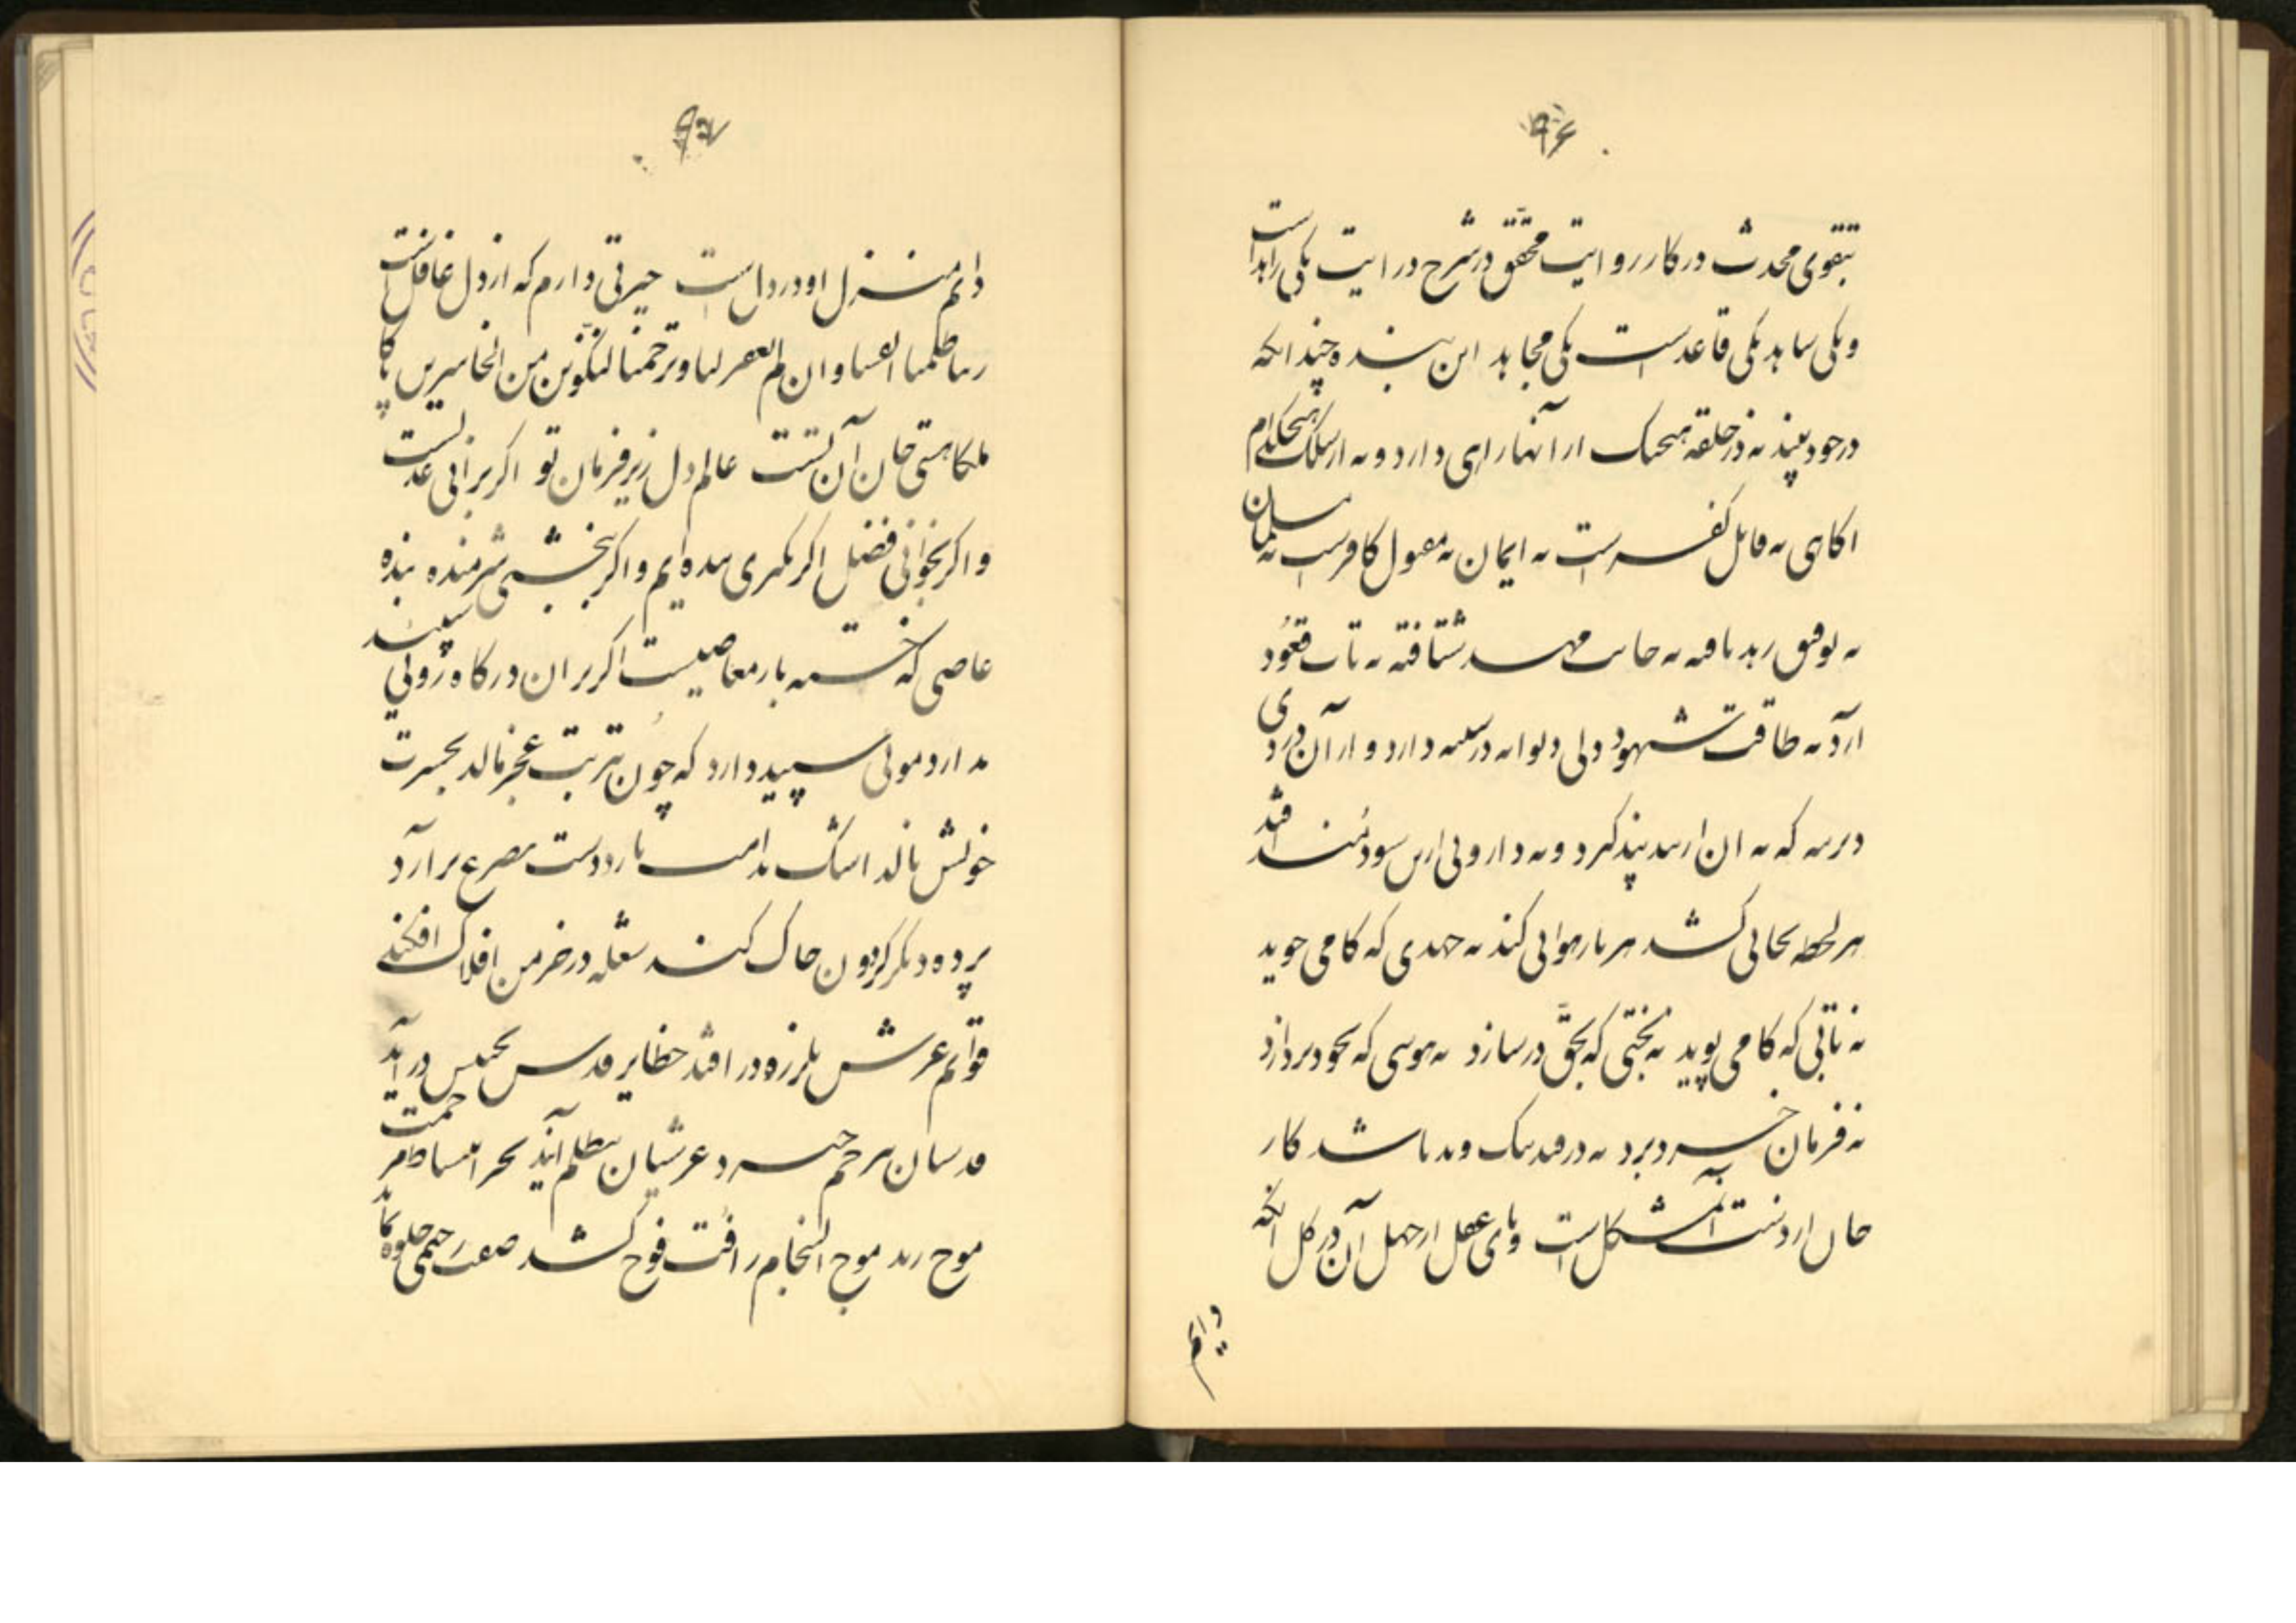 ۹۶
بتقوی محدث در کار روایت محقق در شرح درایت یکی زاهد است
و یکی شاهد یکی قاعد است یکی مجاهد این بنده چندانکه
در خود بیند نه در حلقه هیچیک از آنها راهی دارد و نه از سلک هیچکدام
آگاهی نه قابل کفر است نه ایمان نه مقبول کافر است نه مسلمان
نه توفیق زهد یافته نه جانب مهد شتافته نه تاب قعود
آرد نه طاقت شهود دلی دیوانه در سینه دارد و از آن دردی
دیرینه که نه از این پند گیرد و نه داروئی ازین سودمند افتد
هر لحظه بجائی کشد هر بار هوائی کند نه جهدی که کامی جوید
نه تابی که کامی پوید نه بختی که بحق در سازد نه هوسی که بخود پردازد
نه فرمان خرد برد نه در قید نیک و بد باشد کار
جان از دست آن مشکل است و پای عقل از جهل آن در گل آنکه
دایم
۹۷
دایم منزل او در دل است حیرتی دارم که از دل غافل است
ربنا ظلمنا انفسنا و ان لم تغفر لنا و ترحمنا لنکونن من الخاسرین پاکا
ملکا هستی جان آن تست عالم دل زیر فرمان تو اگر برانی عدلست
و اگر بخوانی فضل اگر بگیری بنده‌ایم و اگر ببخشی شرمنده بنده
عاصی که خسته بار معاصیست اگر بر آن درگاه روئی سپید
ندارد موئی سپید دارد که چون بتربت عجز مالد بحسرت
خویش نالد اشک ندامت بارد دست بضرع برآرد
پرده دیگر گردون چاک کند شعله در خرمن افلاک افکند
قوائم عرش بلرزه در افتد حظایر قدس بجیبش درآید
قدسیان بترحم خیزد عرشیان بتظلم آیند بحر انبساط رحمت
موج زند موج النجام رافت فوج کشد صفت رحیمی جلوه نماید